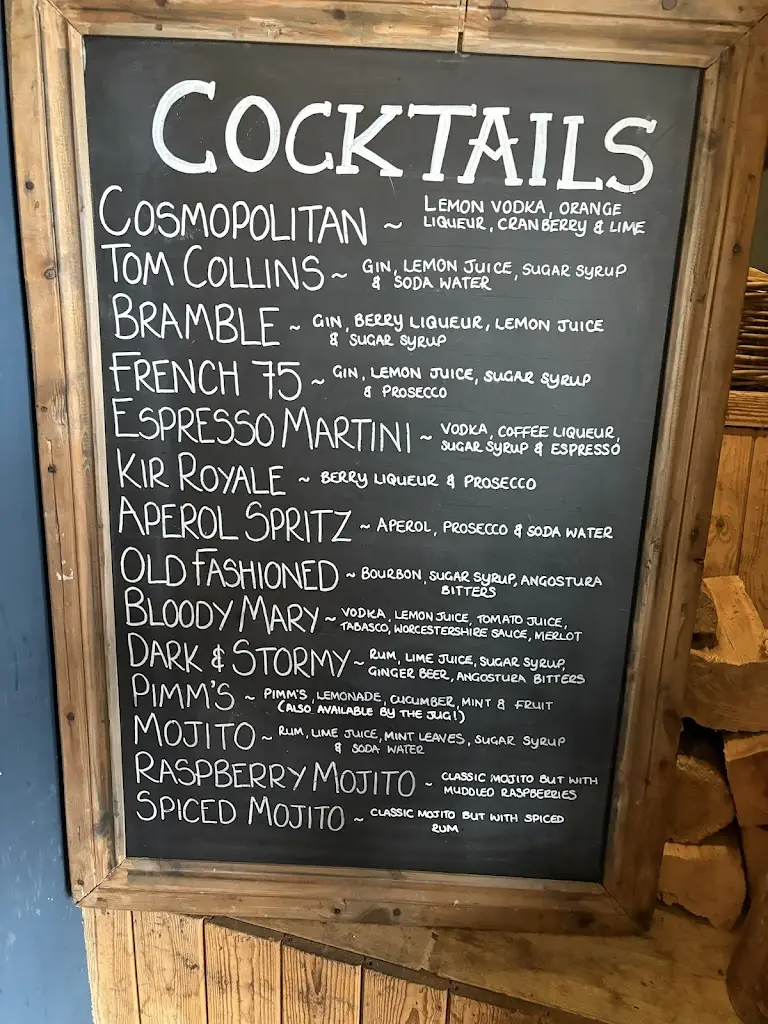 COCKTAILS
COSMOPOLITAN ~ LEMON VODKA, ORANGE
LIQUEUR, CRANBERRY & LIME
TOM COLLINS ~ GIN, LEMON JUICE, SUGAR SYRUP
& SODA WATER
BRAMBLE ~ GIN, BERRY LIQUEUR, LEMON JUICE
& SUGAR SYRUP
FRENCH 75 ~ GIN, LEMON JUICE, SUGAR SYRUP
& PROSECCO
ESPRESSO MARTINI ~ VODKA, COFFEE LIQUEUR,
SUGAR SYRUP & ESPRESSO
KIR ROYALE ~ BERRY LIQUEUR & PROSECCO
APEROL SPRITZ ~ APEROL, PROSECCO & SODA WATER
OLD FASHIONED ~ BOURBON, SUGAR SYRUP, ANGOSTURA
BITTERS
BLOODY MARY ~ VODKA, LEMON JUICE, TOMATO JUICE,
TABASCO, WORCESTERSHIRE SAUCE, MERLOT
DARK & STORMY ~ RUM, LIME JUICE, SUGAR SYRUP,
GINGER BEER, ANGOSTURA BITTERS
PIMM'S ~ PIMM'S, LEMONADE, CUCUMBER, MINT & FRUIT
(ALSO AVAILABLE BY THE JUG!)
MOJITO ~ RUM, LIME JUICE, MINT LEAVES, SUGAR SYRUP
& SODA WATER
RASPBERRY MOJITO ~ CLASSIC MOJITO BUT WITH
MUDDLED RASPBERRIES
SPICED MOJITO ~ CLASSIC MOJITO BUT WITH SPICED
RUM